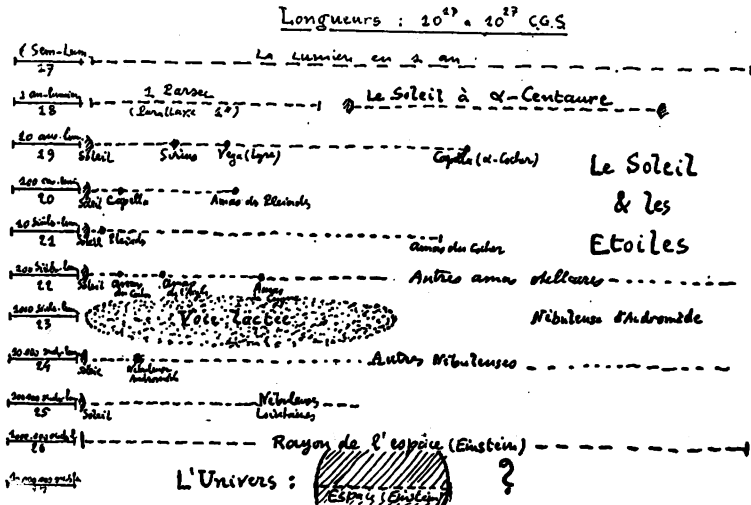 Longueurs : 10¹⁷ à 10²⁷ C.G.S
1 Sem-Lum
17
La Lumière en 1 an
1 an-lumière
18
1 Parsec
(Parallaxe 1")
Le Soleil à α-Centaure
10 ans-lum
19
Soleil
Sirius
Vega (Lyre)
Capella (α-Cocher)
Le Soleil
& les
Etoiles
100 ans-lum
20
Soleil
Capella
Amas des Pleiades
10 Siècles-lum
21
Soleil
Pleiades
Amas du Cocher
100 Siècles-lum
22
Soleil
Amas
Amas
Amas
Autres amas stellaires
1000 Siècles-lum
23
Voie lactée
Nébuleuse d'Andromède
24
Soleil
Nébuleuse
Andromède
Autres Nébuleuses
25
Soleil
Nébuleuses
Lointaines
26
Rayon de l'espace (Einstein)
L'Univers :
Espace (Einstein)
?